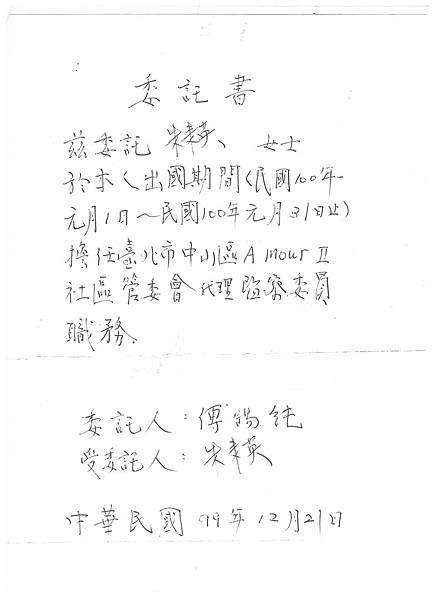 委託書
茲委託 宋幸英、 女士
於本人出國期間(民國100年
元月1日～民國100年元月31日止)
擔任臺北市中山區 Amour II
社區管委會代理監察委員
職務.
委託人：傅錫純
受委託人：宋幸英
中華民國 99年12月21日